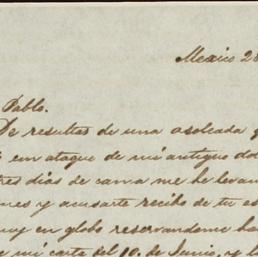 Mexico 28
Pablo.
De resultas de una asoleada y
en ataque de mi antiguo dol
tres dias de cama me he levan
nes y acusarte recibo de tu es
muy en globo reservandome ha
mi carta del 10. de Junio, y l